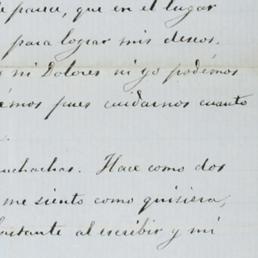 parece, que en el lugar
para lograr mis deseos.
ni Dolores ni yo podemos
pues cuidarnos cuanto
muchachas. Hace como dos
me siento como quisiera,
al escribir y mi